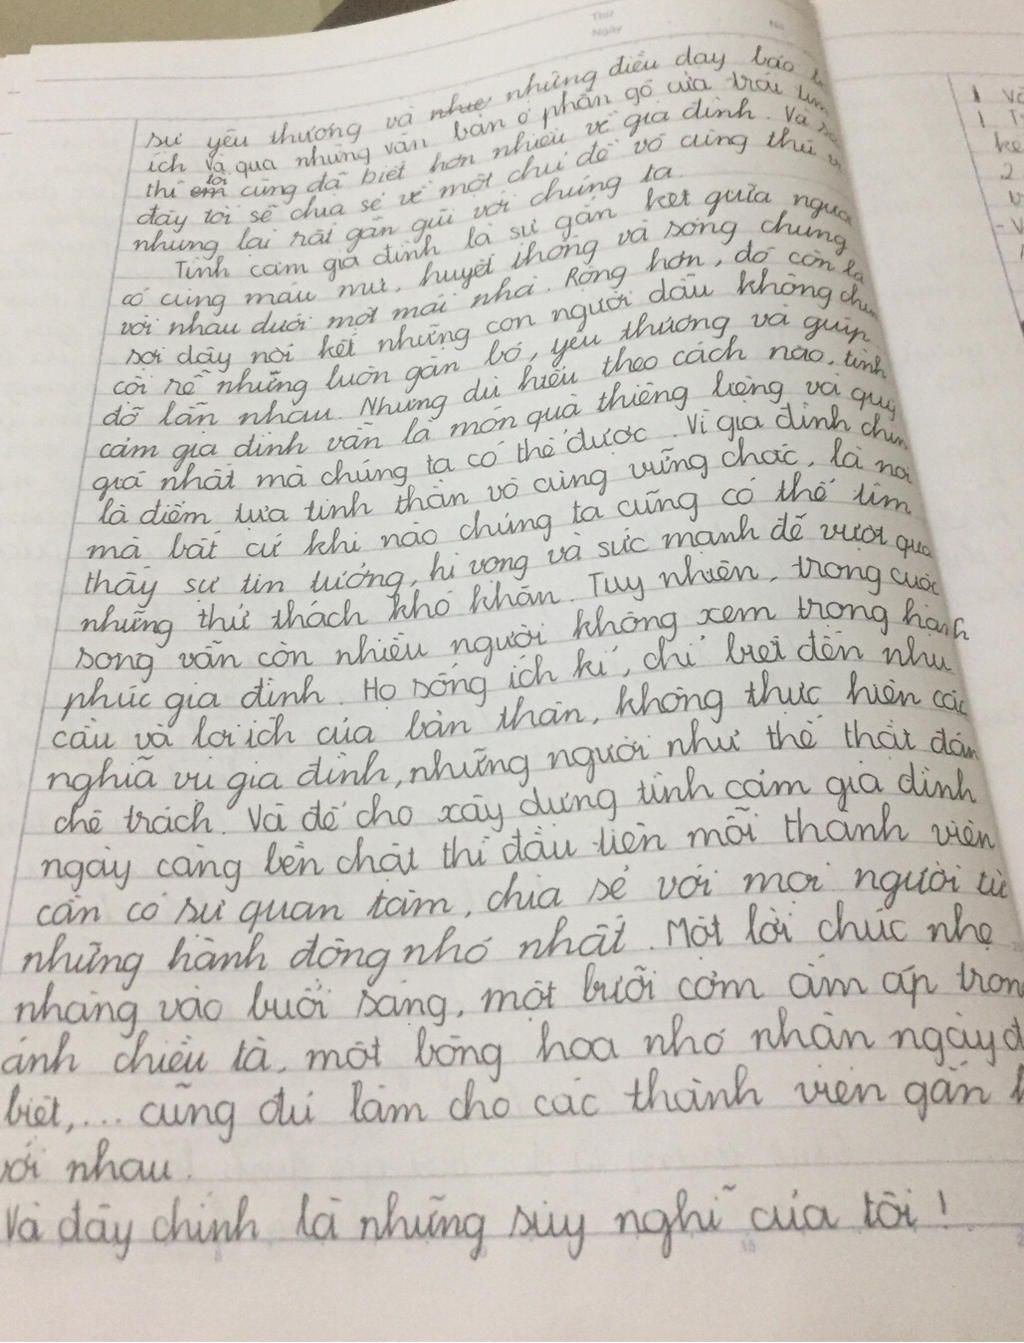 Thứ
Ngày
No
sự yêu thương và như những điều dạy bảo
ích Và qua những văn bản ở phần gõ cửa trái tim
thì em tôi cũng đã biết hơn nhiều về gia đình. Và
đây tôi sẽ chia sẻ về một chủ đề vô cùng thú
nhưng lại rất gần gũi với chúng ta.
Tình cảm gia đình là sự gắn kết giữa người
có cùng máu mủ, huyết thống và sống chung
với nhau dưới một mái nhà. Rộng hơn, đó còn là
sợi dây nối kết những con người dẫu không chu
cội rễ nhưng luôn gắn bó, yêu thương và giúp
đỡ lẫn nhau. Nhưng dù hiểu theo cách nào, tình
cảm gia đình vẫn là món quà thiêng liêng và quý
giá nhất mà chúng ta có thể được. Vì gia đình chín
là điểm tựa tinh thần vô cùng vững chắc, là nơi
mà bất cứ khi nào chúng ta cũng có thể tìm
thấy sự tin tưởng, hi vọng và sức mạnh để vượt qua
những thử thách khó khăn. Tuy nhiên, trong cuộc
sống vẫn còn nhiều người không xem trọng hạnh
phúc gia đình. Họ sống ích kỉ, chỉ biết đến nhu
cầu và lợi ích của bản thân, không thực hiện các
nghĩa vụ gia đình, những người như thế thật đán
chê trách. Và để cho xây dựng tình cảm gia đình
ngày càng bền chặt thì đầu tiên mỗi thành viên
cần có sự quan tâm, chia sẻ với mọi người từ
những hành động nhỏ nhất. Một lời chúc nhẹ
nhàng vào buổi sáng, một buỗi cơm ấm áp tron
ánh chiều tà, một bông hoa nhỏ nhân ngày đ
biệt,... cũng đủ làm cho các thành viên gắn b
với nhau.
Và đây chính là những suy nghĩ của tôi!